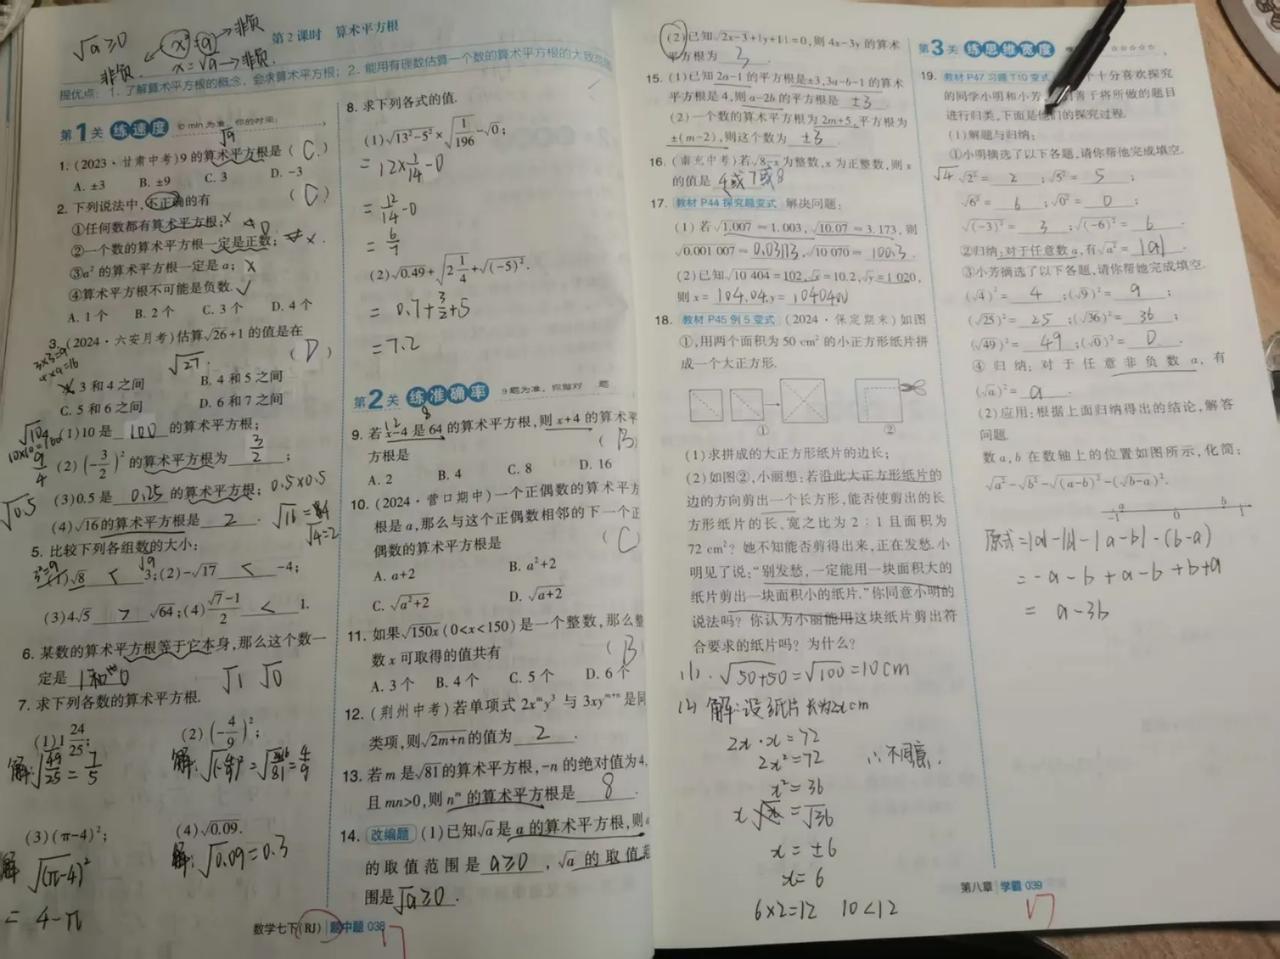 √a≥0
x²=a→非负
非负
x=√a→非负
第2课时 算术平方根
提优点:1.了解算术平方根的概念,会求算术平方根;2.能用有理数估算一个数的算术平方根的大致范围
第1关 练速度
√9
1.(2023·甘肃中考)9的算术平方根是(C)
A.±3 B.±9 C.3 D.-3
2.下列说法中,不正确的有(C)
①任何数都有算术平方根;x
②一个数的算术平方根一定是正数;x
③a²的算术平方根一定是a;x
④算术平方根不可能是负数.√
A.1个 B.2个 C.3个 D.4个
3.(2024·六安月考)估算√26+1的值是在(D)
3×3=9
4×4=16
√27
A.3和4之间 B.4和5之间
C.5和6之间 D.6和7之间
(1)10是 100 的算术平方根;
(2)(-3/2)²的算术平方根为 3/2;
9/4
(3)0.5是 0.25 的算术平方根;0.5×0.5
√0.5
(4)√16的算术平方根是 2.
√4=2
5.比较下列各组数的大小:
(1)√8 < 3;(2)-√17 < -4;
(3)4√5 > √64;(4)(√7-1)/2 < 1.
6.某数的算术平方根等于它本身,那么这个数一
定是 1和0
√1 √0
7.求下列各数的算术平方根.
(1)1 24/25; (2)(-4/9)²;
解:√49/25=7/5 解:√(-4/9)²=√16/81=4/9
(3)(π-4)²; (4)√0.09.
解 √(π-4)² 解:√0.09=0.3
=4-π
8.求下列各式的值.
(1)√13²-5²×√1/196-√0;
=12×1/14-0
=12/14-0
=6/7
(2)√0.49+√2 1/4+√(-5)².
=0.7+3/2+5
=7.2
第2关 练准确率
9.若x-4是64的算术平方根,则x+4的算术平
方根是(B)
A.2 B.4 C.8 D.16
10.(2024·营口期中)一个正偶数的算术平方
根是a,那么与这个正偶数相邻的下一个正
偶数的算术平方根是(C)
A.a+2 B.a²+2
C.√a²+2 D.√a+2
11.如果√150x(0<x<150)是一个整数,那么整
数x可取得的值共有(B)
A.3个 B.4个 C.5个 D.6个
12.(荆州中考)若单项式2xᵐy³与3xyᵐ⁺ⁿ是同
类项,则√2m+n的值为 2.
13.若m是√81的算术平方根,-n的绝对值为4,
且mn>0,则nᵐ的算术平方根是 8.
14.改编题(1)已知√a是a的算术平方根,则a
的取值范围是 a≥0,√a的取值范
围是 √a≥0.
数学七下(RJ) 题中题 038
(2)已知√2x-3+|y+1|=0,则4x-3y的算术
平方根为 3.
15.(1)已知2a-1的平方根是±3,3a-b-1的算术
平方根是4,则a-2b的平方根是 ±3
(2)一个数的算术平方根为2m+5,平方根为
±(m-2),则这个数为 ±3.
16.(南充中考)若√8-x为整数,x为正整数,则x
的值是 4或7或8
17.教材P44探究题变式 解决问题:
(1)若√1.007=1.003,√10.07=3.173,则
√0.001 007= 0.03173,√10 070= 100.3.
(2)已知√10 404=102,√x=10.2,√y=1 020,
则x= 104.04,y= 1040400
18.教材P45例5变式(2024·保定期末)如图
①,用两个面积为50 cm²的小正方形纸片拼
成一个大正方形.
① ②
(1)求拼成的大正方形纸片的边长;
(2)如图②,小丽想:若沿此大正方形纸片的
边的方向剪出一个长方形,能否使剪出的长
方形纸片的长、宽之比为2:1且面积为
72 cm²?她不知能否剪得出来,正在发愁.小
明见了说:“别发愁,一定能用一块面积大的
纸片剪出一块面积小的纸片.”你同意小明的
说法吗?你认为小丽能用这块纸片剪出符
合要求的纸片吗?为什么?
(1).√50+50=√100=10cm
(2)解:设纸片长为2xcm
2x·x=72
2x²=72 ∴不同意.
x²=36
x=√36
x=±6
x=6
6×2=12 10<12
第3关 练思维宽度
19.教材P47习题T10变式 个十分喜欢探究
的同学小明和小芳 们善于将所做的题目
进行归类,下面是他们的探究过程.
(1)解题与归纳:
①小明摘选了以下各题,请你帮他完成填空.
√4 √2²= 2;√5²= 5;
√6²= 6;√0²= 0;
√(-3)²= 3;√(-6)²= 6.
②归纳:对于任意数a,有√a²= |a|.
③小芳摘选了以下各题,请你帮她完成填空.
(√4)²= 4;(√9)²= 9;
(√25)²= 25;(√36)²= 36;
(√49)²= 49;(√0)²= 0.
④归纳:对于任意非负数a,有
(√a)²= a.
(2)应用:根据上面归纳得出的结论,解答
问题.
数a,b在数轴上的位置如图所示,化简:
√a²-√b²-√(a-b)²-(√b-a)².
a b
-1 0 1
原式=|a|-|b|-|a-b|-(b-a)
=-a-b+a-b+b+a
=a-3b
第八章 学霸 039